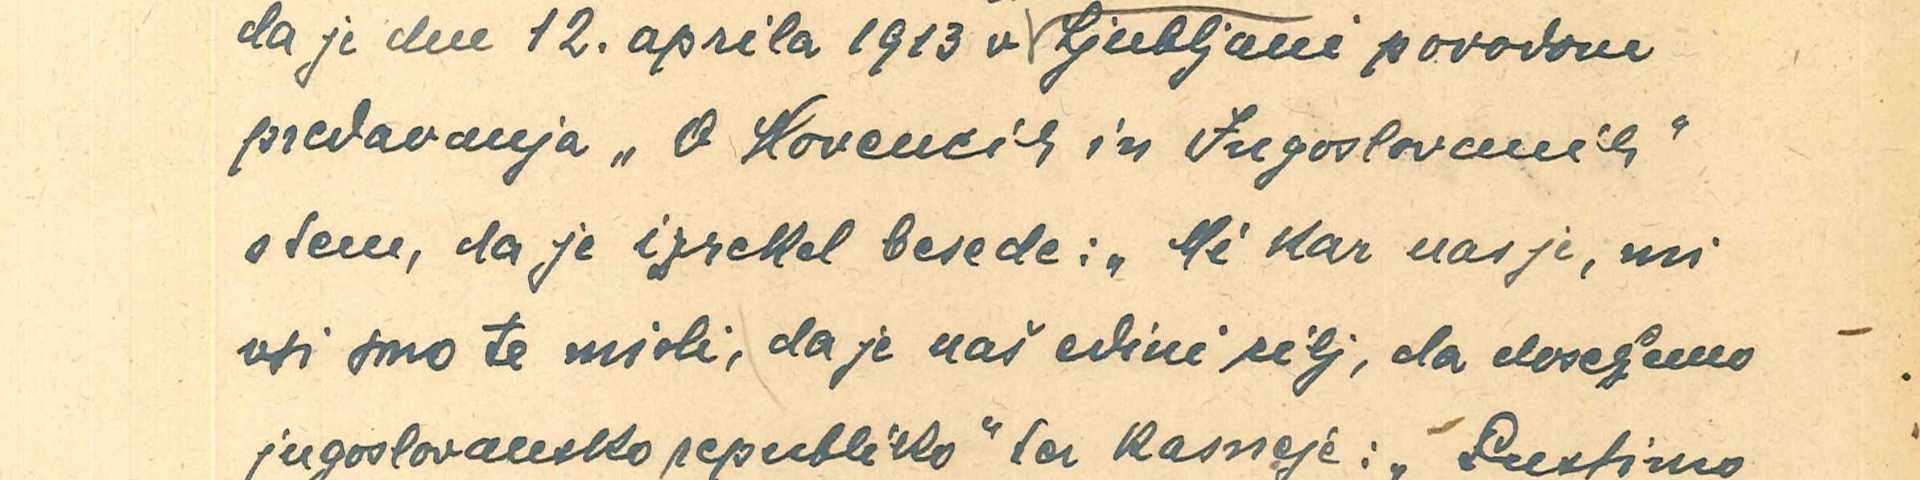 da je dne 12. aprila 1913 v Ljubljani povodom
predavanja „ O Slovencih in Jugoslovanih “
s tem, da je izrekel besede : „ Mi kar nas je, mi
vsi smo te misli, da je naš edini cilj, da dosežemo
jugoslovansko republiko “ ter kasneje : „ Pustimo